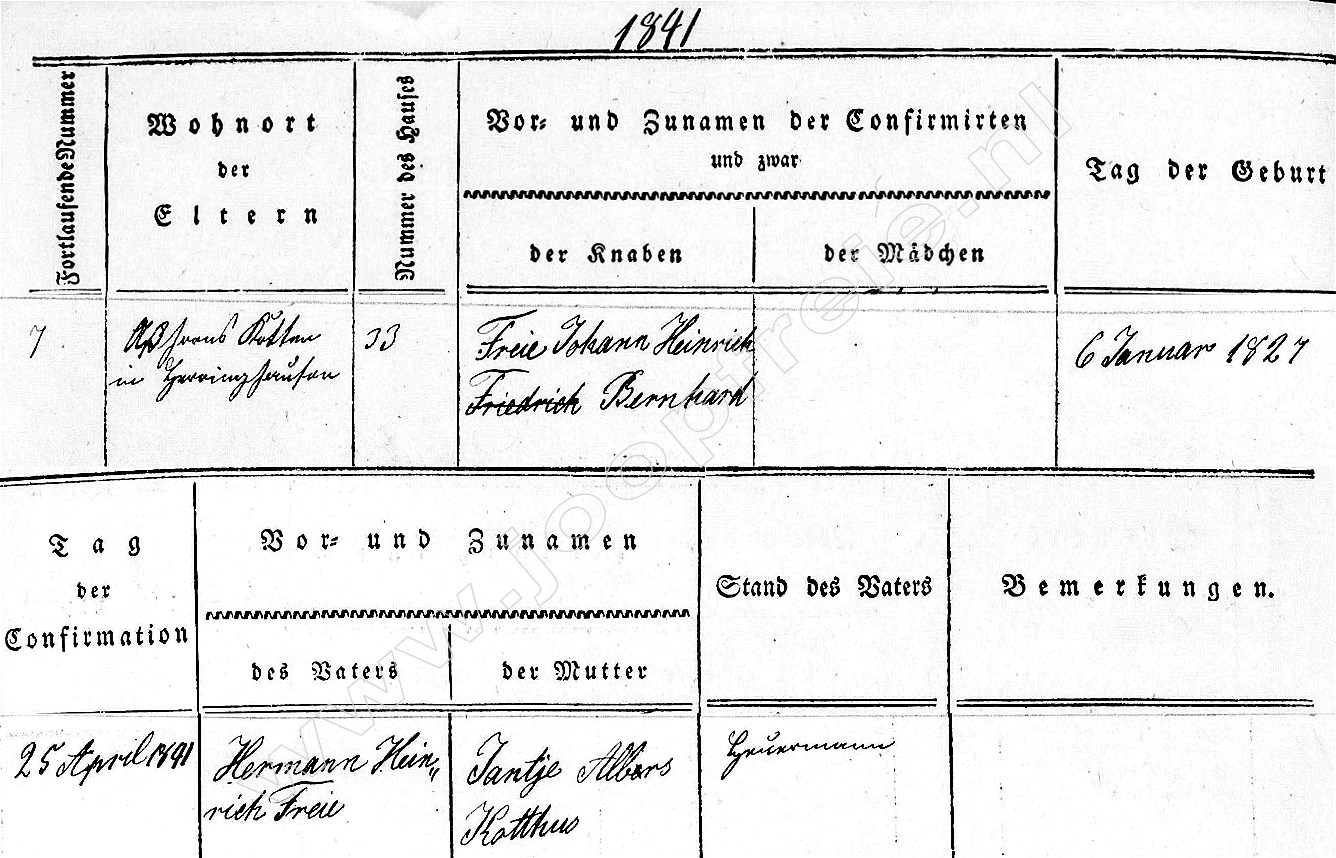 1841
Fortlaufende Nummer
Wohnort
der
Eltern
Nummer des Hauses
Vor- und Zunamen der Confirmirten
und zwar
der Knaben
der Mädchen
Tag der Geburt
7
Kotten
in Herringhausen
33
Freie Johann Heinrich
Friedrich Bernhard
6 Januar 1827
Tag
der
Confirmation
Vor- und Zunamen
des Vaters
der Mutter
Stand des Vaters
Bemerkungen.
25 April 1841
Hermann Hein„
rich Freie
Jantje Albers
Kotthus
Heuermann
www.joopfreie.nl